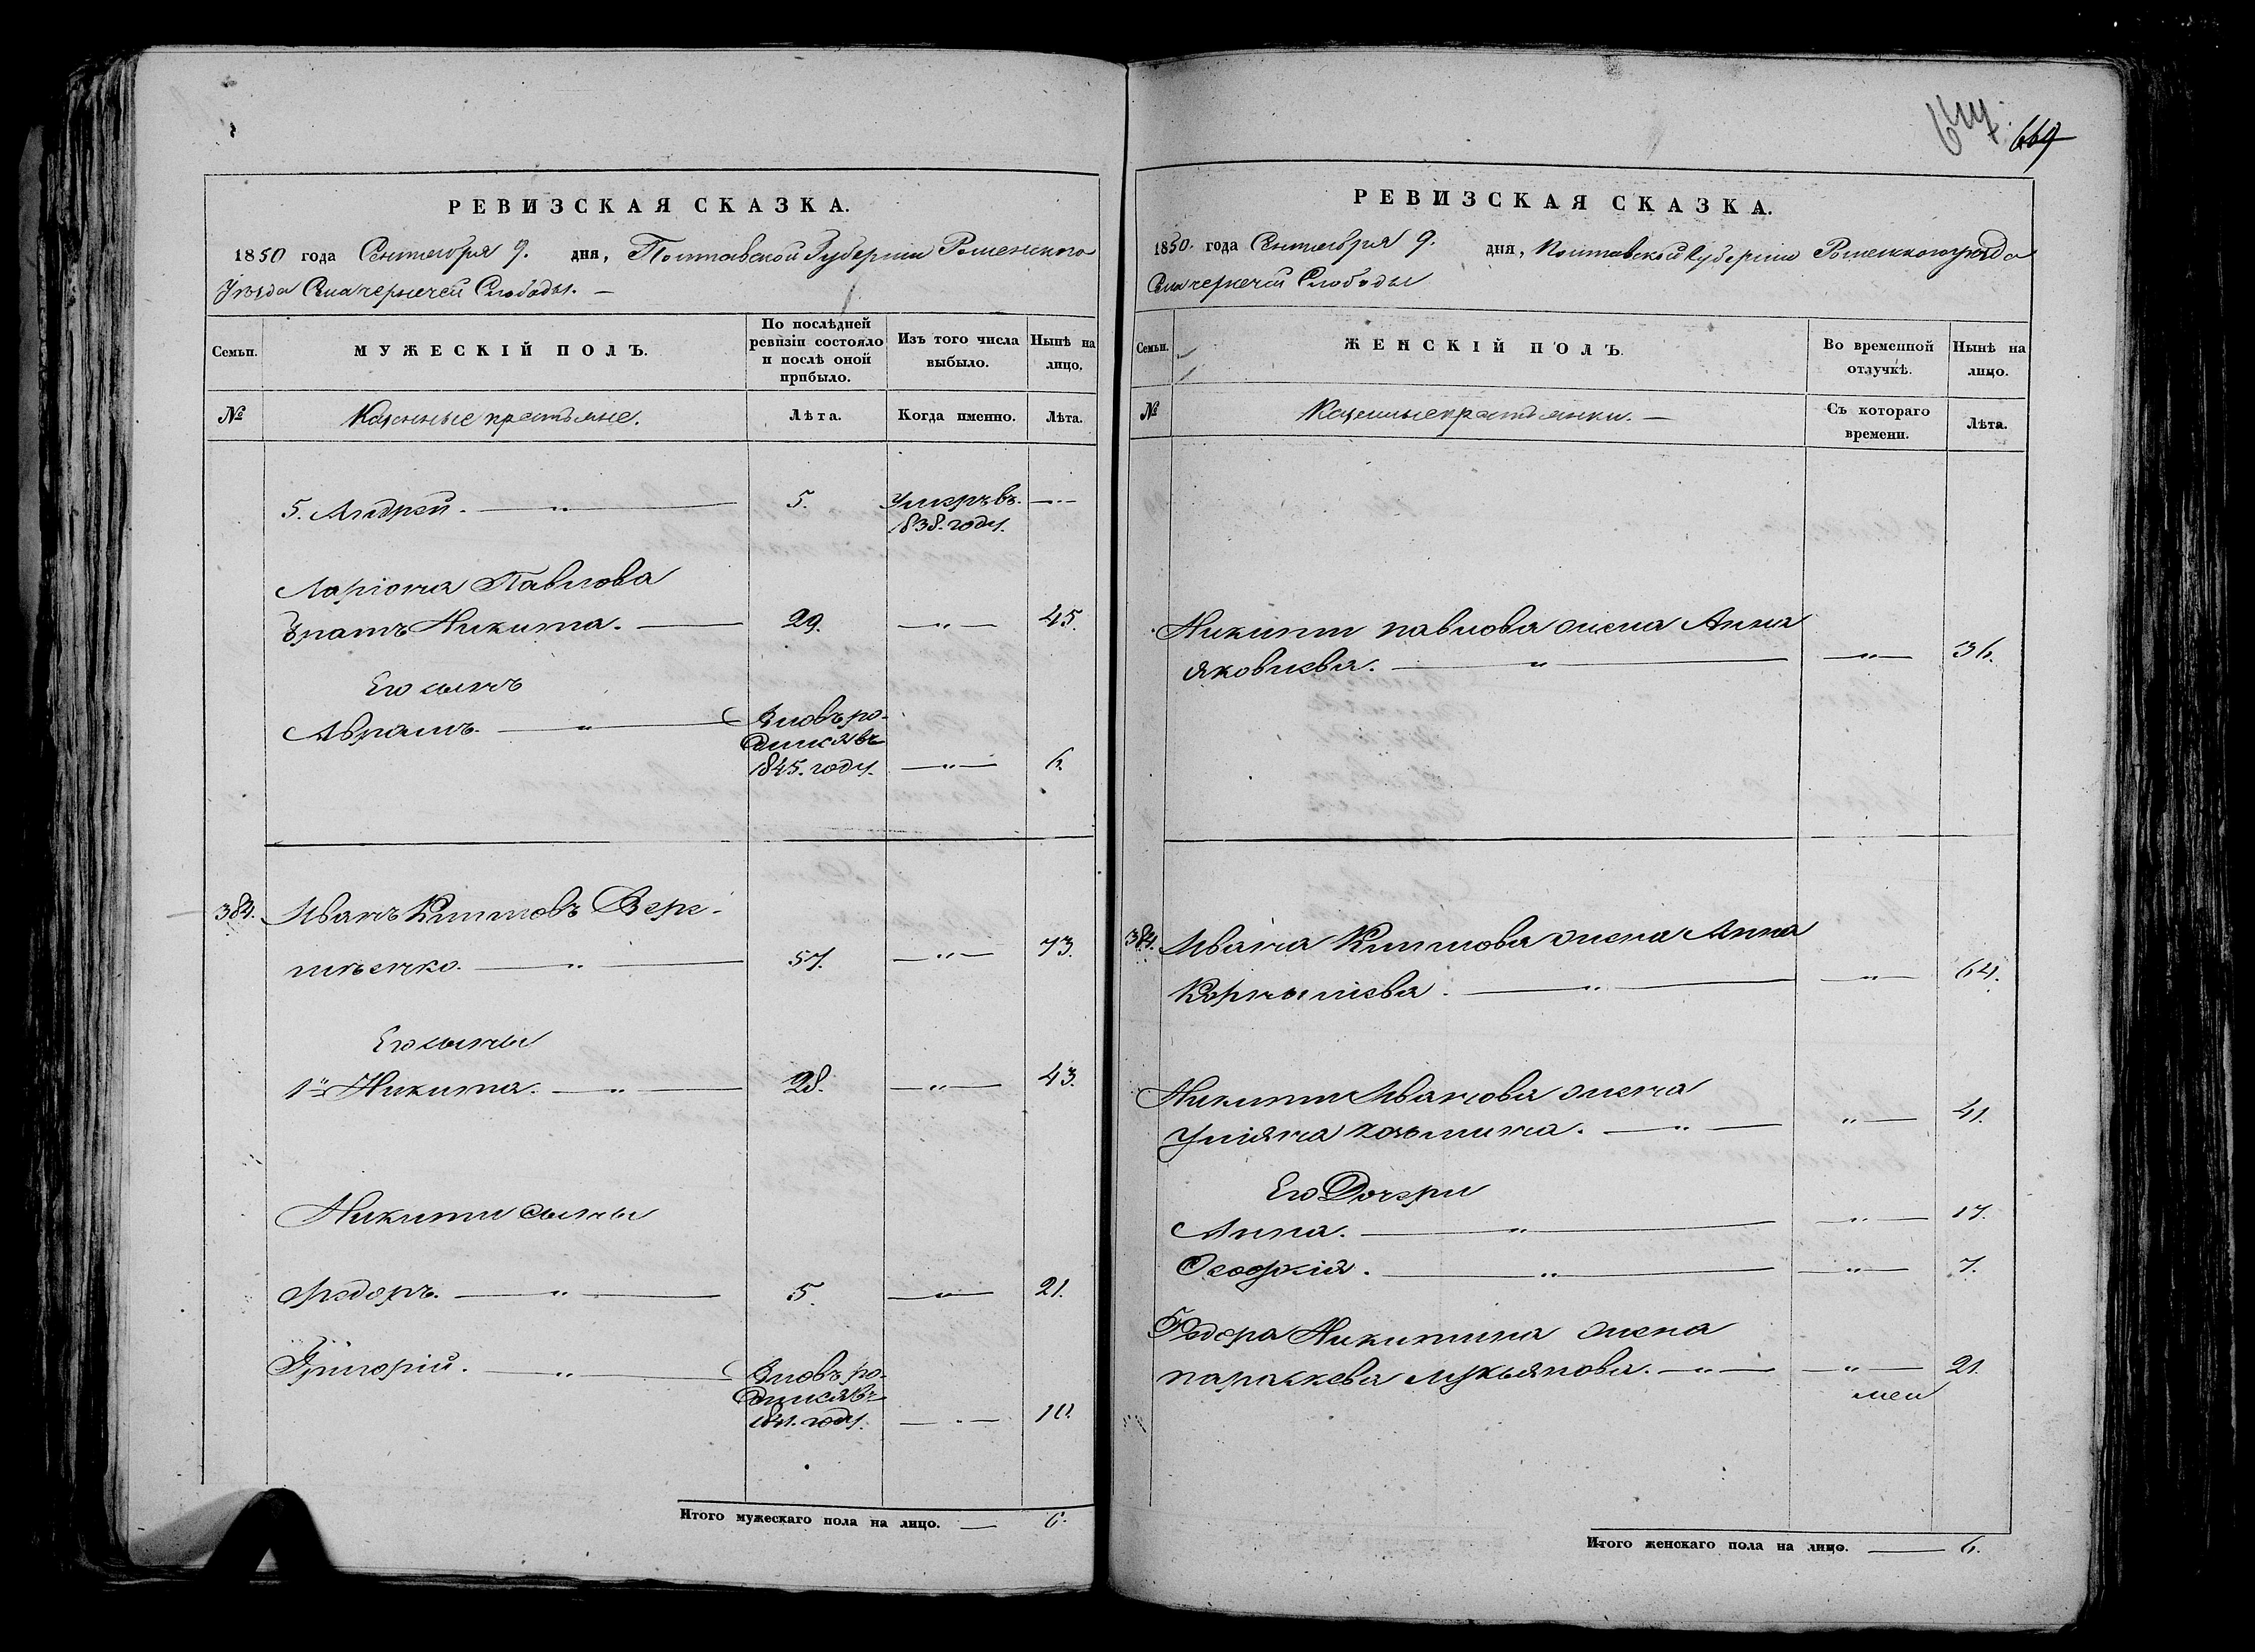 РЕВИЗСКАЯ СКАЗКА.
1850 года Сентября 9. дня, Полтавской Губерніи Роменского
Уѣзда Села чернечей Слободы. —
Семьи.
МУЖЕСКІЙ ПОЛЪ.
По послѣдней
ревизіи состояло
и послѣ оной
прибыло.
Изъ того числа
выбыло.
Нынѣ на
лицо.
№
Казенные крестьяне.
Лѣта.
Когда именно.
Лѣта.
5. Андрей. — „ — 5. Умеръ въ — „ —
1838. году.
Ларіона Павлова
братъ Никита. — 29. — „ — 45.
Его сынъ
Аврамъ. — „ — Вновь ро-
дился въ
1845. году. — „ — 6.
384. Иванъ Климовъ Вере-
— 57. — „ — 73.
Его сыны
1й Никита. — „ — 28. — „ — 43.
Никиты сыны
Федоръ. — „ — 5. — „ — 21.
Григорій. — „ — Вновь ро-
дился въ
1841. году. — „ — 10.
Итого мужескаго пола на лицо. — 6.
669
РЕВИЗСКАЯ СКАЗКА.
1850. года Сентября 9. дня, Полтавской Губерніи Роменского уѣзда
Села чернечей Слободы
Семьи.
ЖЕНСКІЙ ПОЛЪ.
Во временной
отлучкѣ.
Нынѣ на
лицо.
№
Казенные крестьянки. —
Съ котораго
времени.
Лѣта.
Никиты павлова жена Анна
яковлева. — „ — — „ — 36.
384. Ивана Климова жена Анна
Корнѣліева. — „ — — „ — 64.
Никиты Иванова жена
Уліяна козьмина. — „ — — „ — 41.
Его Дочери
Анна. — „ — — „ — 17.
Феофкія. — „ — — „ — 7.
Федора Никитина жена
параскева лукьянова. — „ — — „ — 21.
Итого женскаго пола на лицо. — 6.